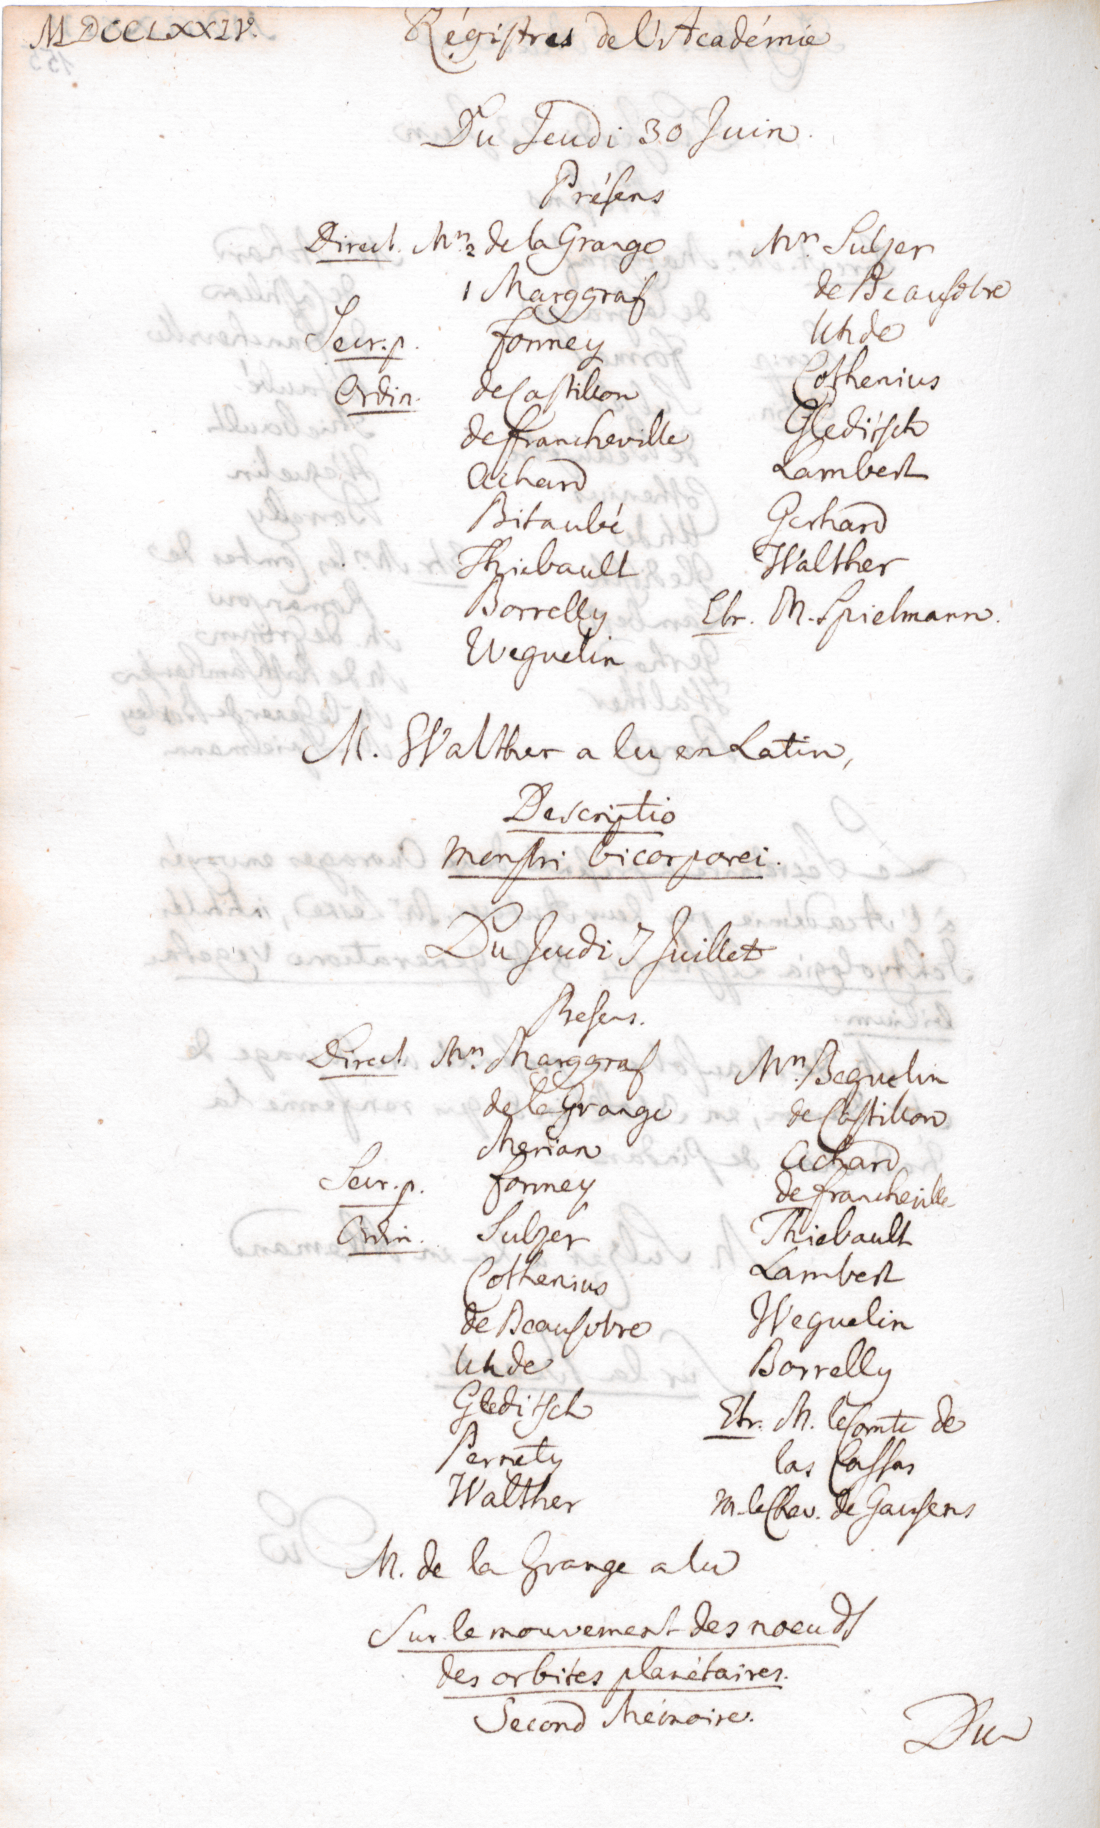 MDCCLXXIV.
Régistres de l'Académie
Du Jeudi 30 Juin.
Présens
Direct. Mrs. 2 de la Grange
1 Marggraf
Secr. p. Formey
Ordin. de Castillon
de Francheville
Achard
Bitaubé
Thiebault
Borrelly
Weguelin
Mrs Sulzer
de Beausobre
Uhde
Cothenius
Gleditsch
Lambert
Gerhard
Walther
Etr. M. Spielmann.
M. Walther a lu en Latin,
Descriptio
monstri bicorporei.
Du Jeudi 7 Juillet
Presens.
Direct. Mrs. Marggraf
de la Grange
Merian
Secr. p. Formey
Ordin. Sulzer
Cothenius
de Beausobre
Uhde
Gleditsch
Pernety
Walther
Mrs. Beguelin
de Castillon
Achard
de Francheville
Thiebault
Lambert
Weguelin
Borrelly
Etr. M. le Comte de
las Casas
M. le Chev. de Gausens
M. de la Grange a lu
Sur le mouvement des noeuds
des orbites planétaires.
Second Mémoire.
Du